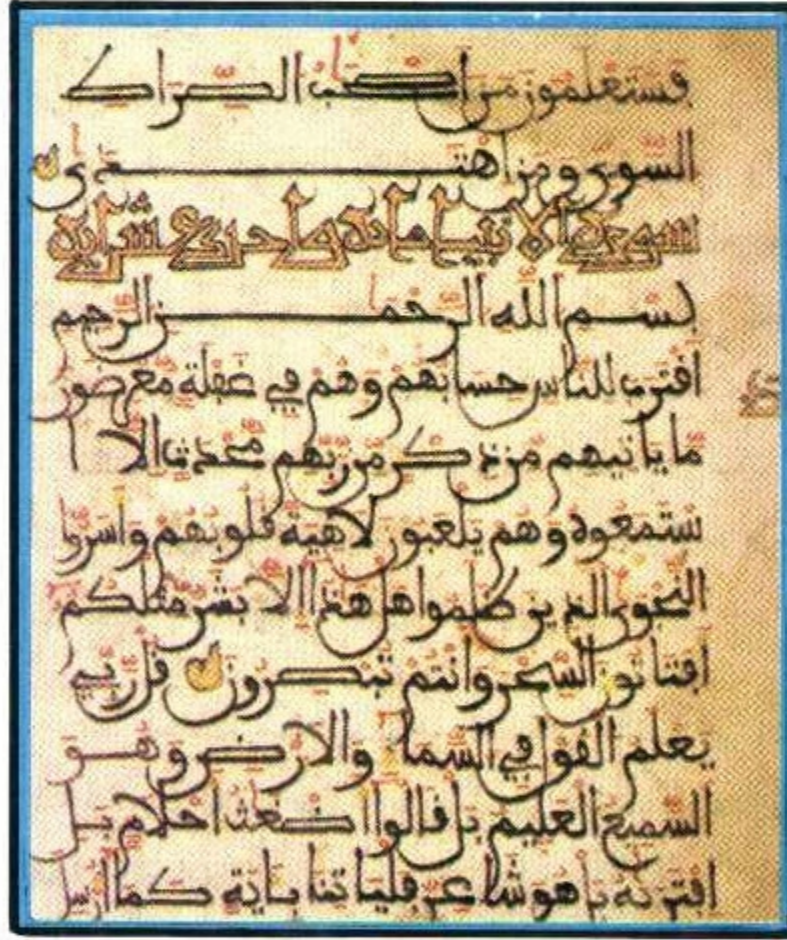 فستعلمون من اصحب الصراط
السوي ومن اهتدى
سورة الانبيا مائة واحدى عشر اية
بسم الله الرحمن الرحيم
اقترب للناس حسابهم وهم في غفلة معرضون
ما ياتيهم من ذكر من ربهم محدث الا ا
ستمعوه وهم يلعبون لاهية قلوبهم واسروا
النجوى الذين ظلموا هل هذا الا بشر مثلكم
افتاتون السحر وانتم تبصرون قل ربي
يعلم القول في السما والارض وهو
السميع العليم بل قالوا اضغث احلام بل
افتريه بل هو شاعر فلياتنا باية كما ارسل